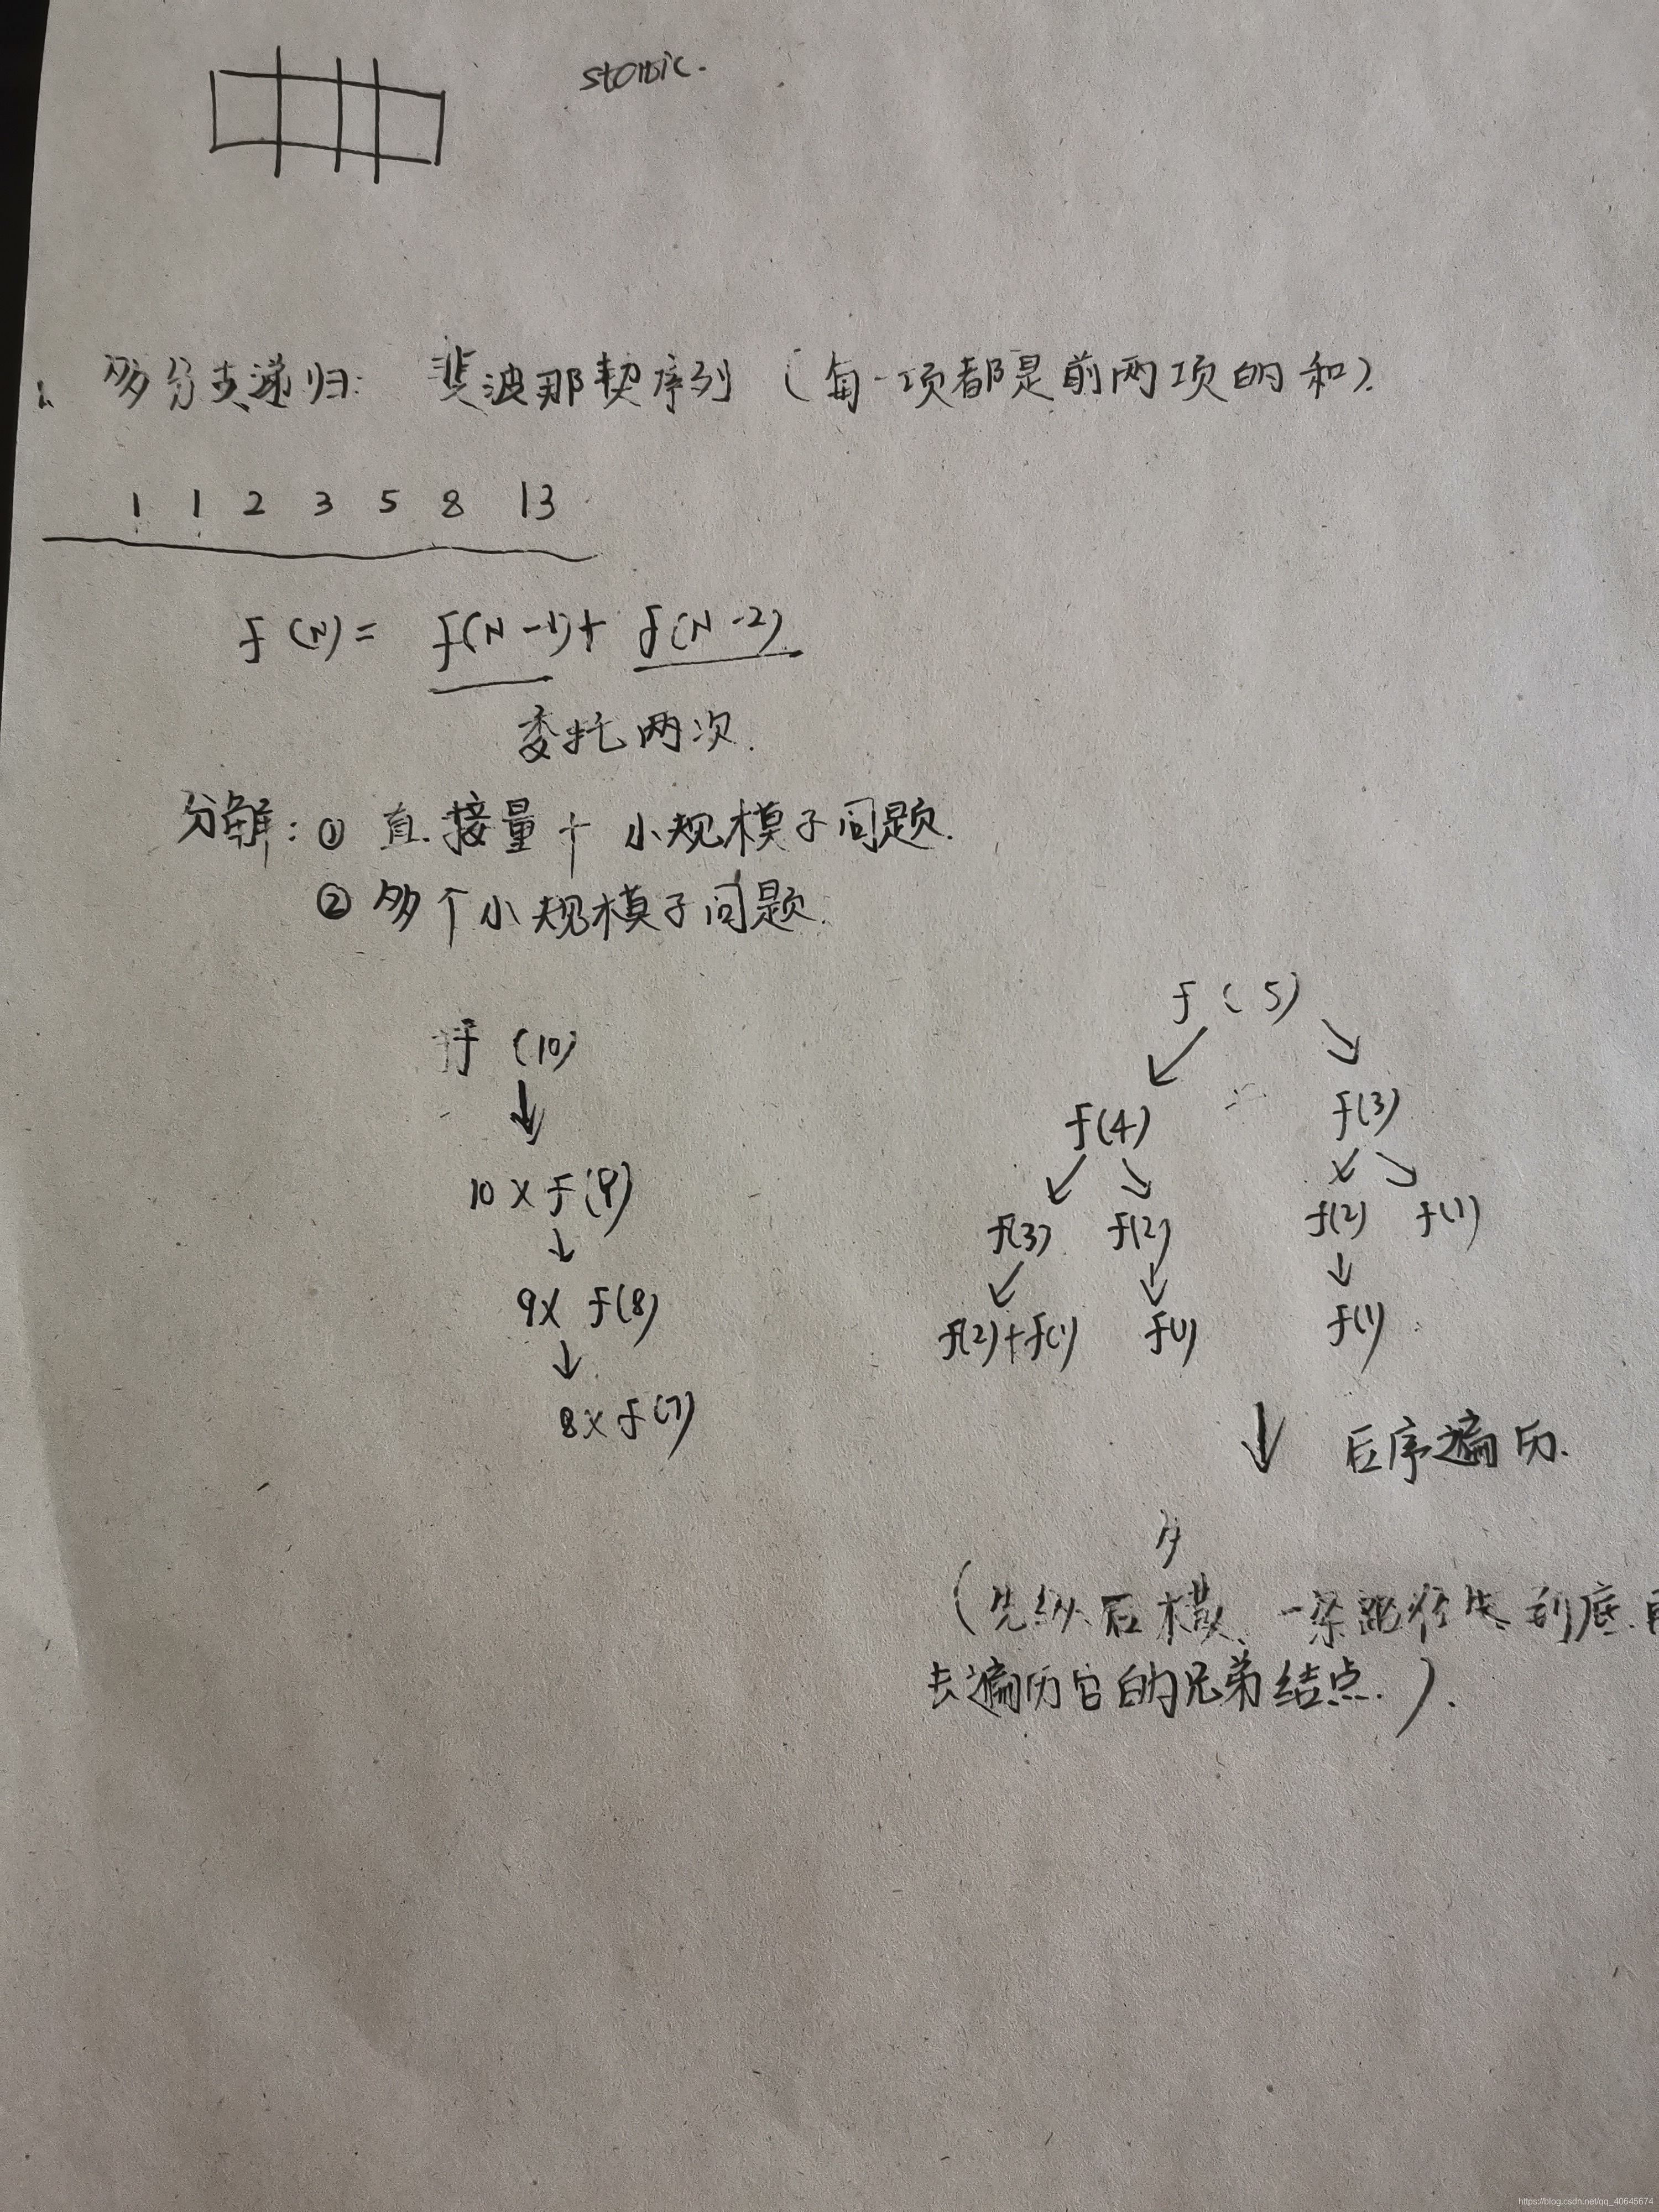 static.
多分支递归: 斐波那契序列 (每一项都是前两项的和).
1 1 2 3 5 8 13
f(N) = f(N-1) + f(N-2)
委托两次.
分解: ① 直接量 + 小规模子问题.
② 多个小规模子问题.
f (10)
10 × f(9)
9× f(8)
8× f(7)
f ( 5)
f(4) f(3)
f(3) f(2) f(2) f(1)
f(2)+f(1) f(1) f(1)
后序遍历.
(先纵后横、一条路径先到底.再
去遍历它的兄弟结点.).
https://blog.csdn.net/qq_40645674